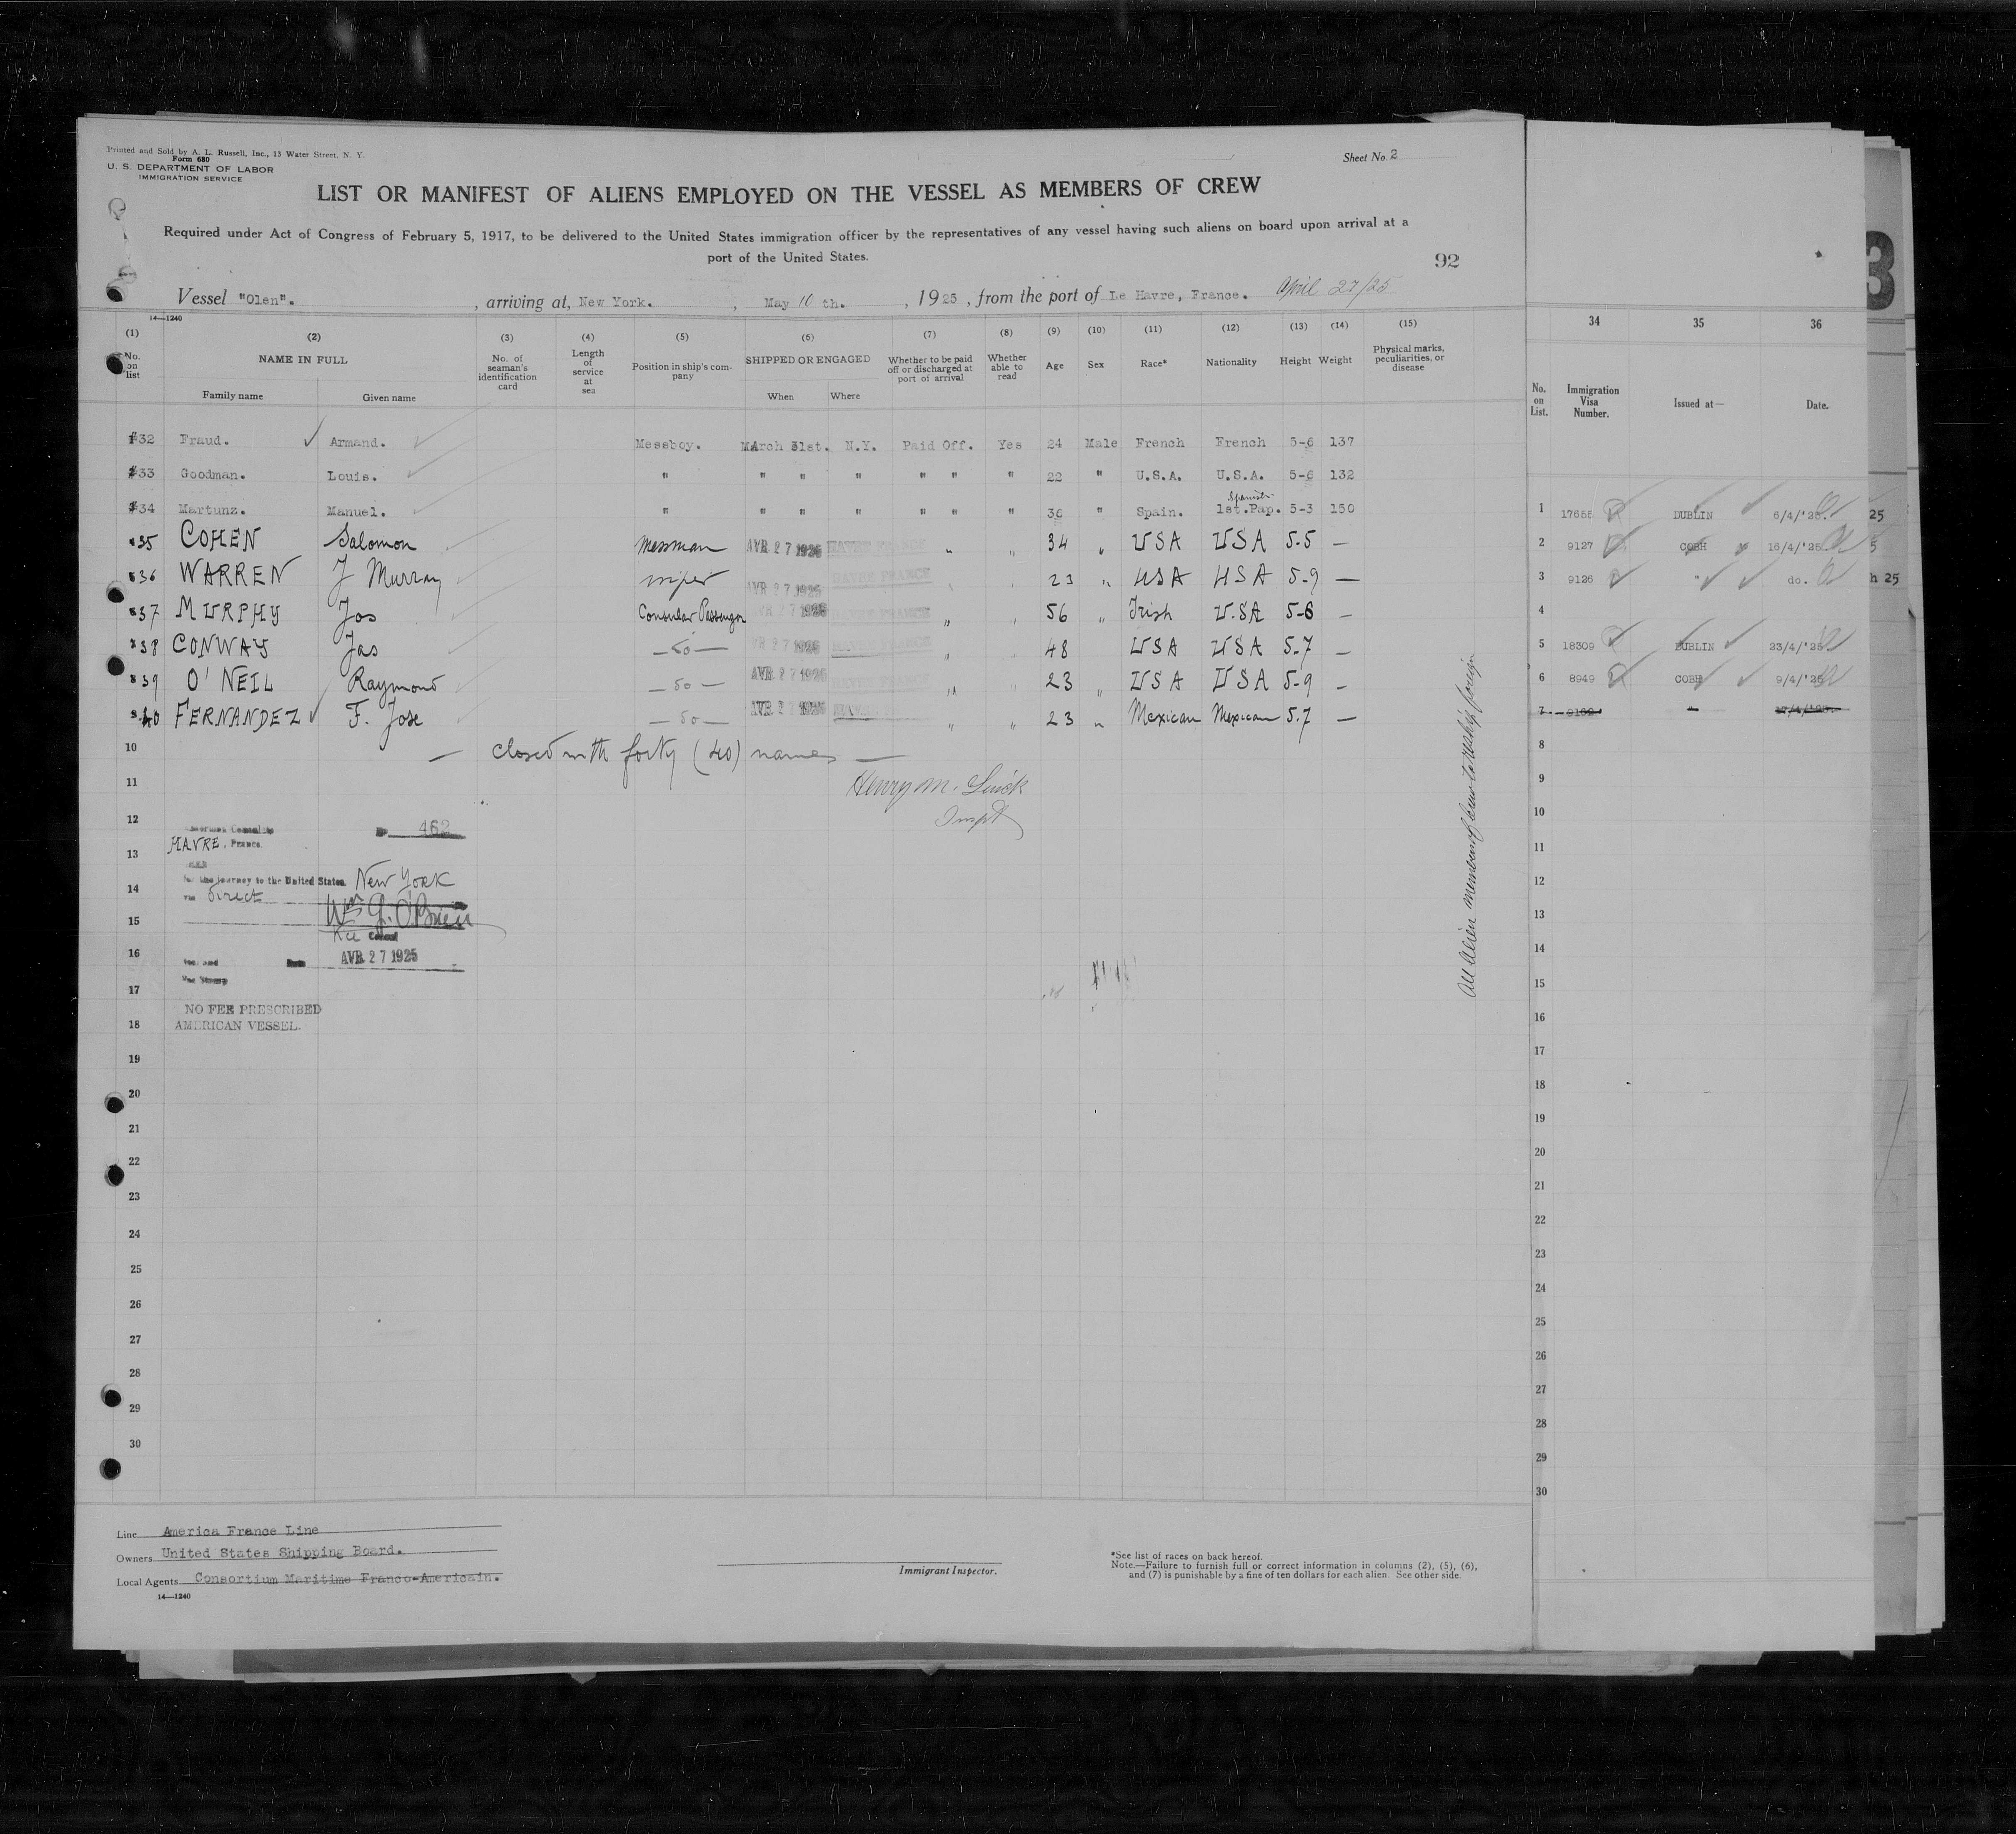 Printed and Sold by A. L. Russell, Inc., 13 Water Street, N. Y.
Form 680
U. S. DEPARTMENT OF LABOR
IMMIGRATION SERVICE
Sheet No. 2
LIST OR MANIFEST OF ALIENS EMPLOYED ON THE VESSEL AS MEMBERS OF CREW
Required under Act of Congress of February 5, 1917, to be delivered to the United States immigration officer by the representatives of any vessel having such aliens on board upon arrival at a
port of the United States.
92
Vessel "Olen". , arriving at, New York. , May 10 th. , 1925 , from the port of Le Havre, France. April 27/25
14—1240
(1) (2) (3) (4) (5) (6) (7) (8) (9) (10) (11) (12) (13) (14) (15)
No. on list NAME IN FULL No. of seaman's identification card Length of service at sea Position in ship's company SHIPPED OR ENGAGED Whether to be paid off or discharged at port of arrival Whether able to read Age Sex Race* Nationality Height Weight Physical marks, peculiarities, or disease
Family name Given name When Where
#32 Fraud. Armand. Messboy. MArch 31st. N.Y. Paid Off. Yes 24 Male French French 5-6 137
#33 Goodman. Louis. " " " " " " " 22 " U.S.A. U.S.A. 5-6 132
Spanish
#34 Martunz. Manuel. " " " " " " " 36 " Spain. 1st.Pap. 5-3 150
35 COHEN Salomon Messman AVR 27 1925 HAVRE FRANCE " " 34 " USA USA 5.5 —
36 WARREN J Murray wiper AVR 27 1925 HAVRE FRANCE " " 23 " USA USA 5-9 —
37 MURPHY Jos Consular Passenger AVR 27 1925 HAVRE FRANCE " " 56 " Irish U.SA 5-6 —
38 CONWAY Jas —do— AVR 27 1925 HAVRE FRANCE " " 48 USA USA 5.7 —
39 O'NEIL Raymond —do— AVR 27 1925 HAVRE FRANCE " " 23 " USA USA 5-9 —
40 FERNANDEZ F. Jose —do— AVR 27 1925 HAVRE " " 23 " Mexican Mexican 5.7 —
10 — closed with forty (40) names —
11 Henry M.
Inspt
12 American Consulate No 462
HAVRE, France.
13
for the journey to the United States. New York
14 via direct
15 Wm J. O'Brien
Vice Consul
16 AVR 27 1925
17
NO FEE PRESCRIBED
18 AMERICAN VESSEL.
19
20
21
22
23
24
25
26
27
28
29
30
All Alien members of crew to reship foreign
Line America France Line
Owners United States Shipping Board.
Local Agents Consortium Maritime Franco-Americain.
14—1240
Immigrant Inspector.
*See list of races on back hereof.
Note.—Failure to furnish full or correct information in columns (2), (5), (6),
and (7) is punishable by a fine of ten dollars for each alien. See other side.
3
34 35 36
No. on List. Immigration Visa Number. Issued at— Date.
1 17655 DUBLIN 6/4/'25. 25
2 9127 COBH 16/4/'25. 5
3 9126 " do. h 25
4
5 18309 DUBLIN 23/4/'25
6 8949 COBH 9/4/'25
7 "
8
9
10
11
12
13
14
15
16
17
18
19
20
21
22
23
24
25
26
27
28
29
30